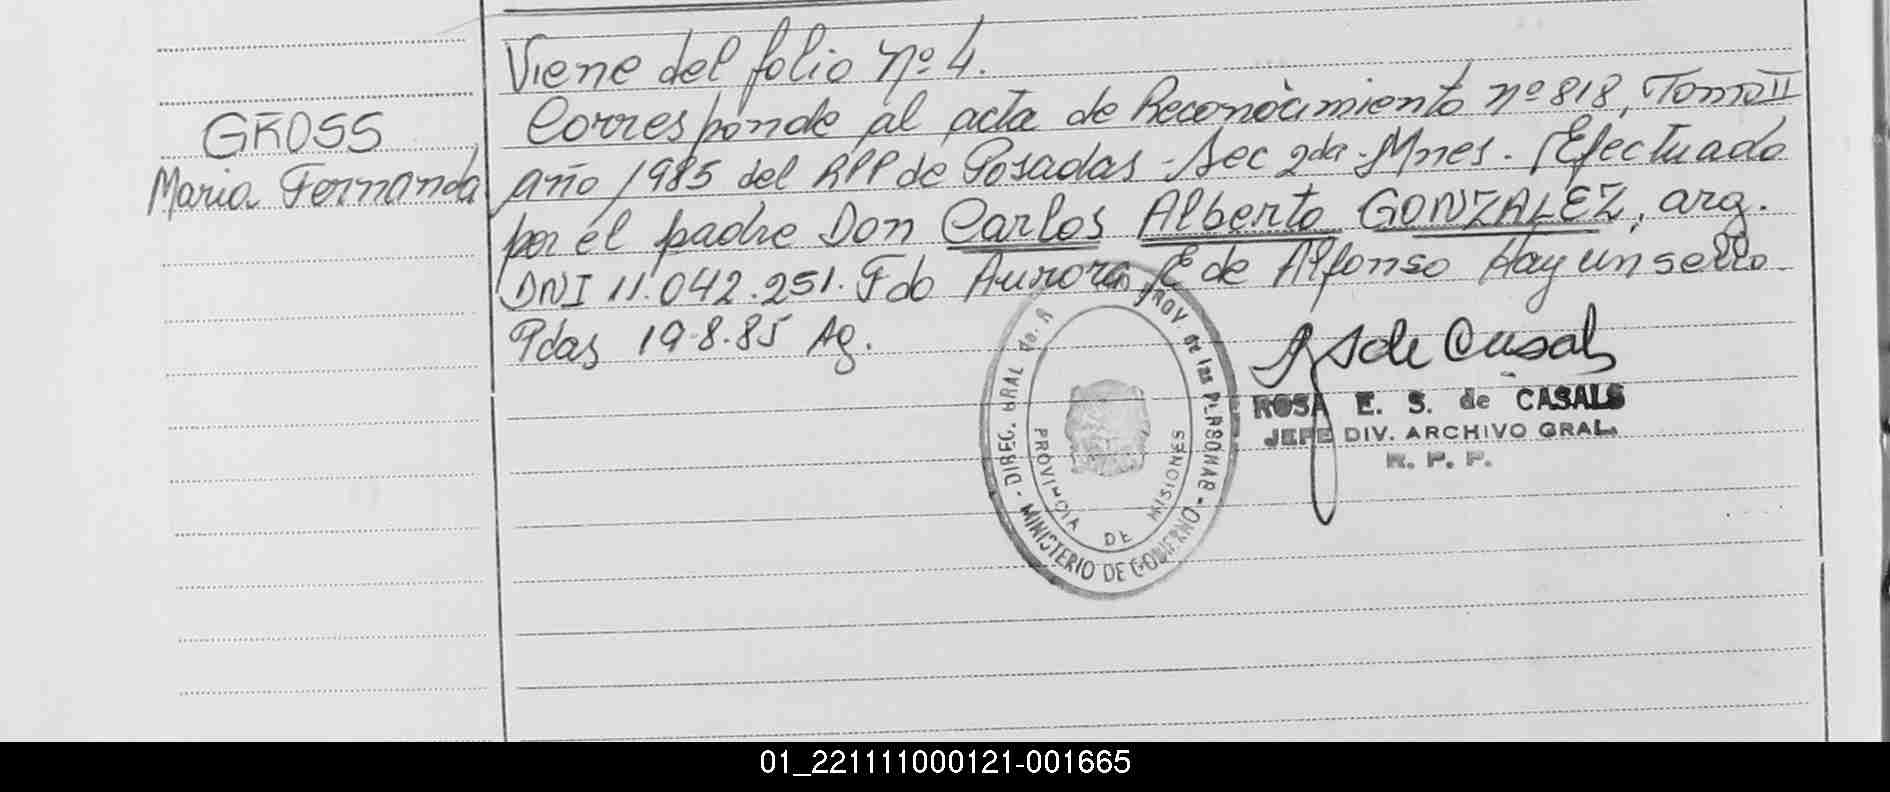 Viene del folio nº 4.
GROSS
Maria Fernanda
Corresponde al acta de Reconocimiento nº 818, Tomo II
año 1985 del RPP de Posadas - Sec 2da - Mnes. Efectuado
por el padre Don Carlos Alberto GONZALEZ, arg.
DNI 11.042.251. Fdo Aurora E de Alfonso Hay un sello.
Pdas 19.8.85 Ag.
DIREC. GRAL PROV. de las PERSONAS - MINISTERIO DE GOBIERNO -
PROVINCIA DE MISIONES
S de Casals
ROSA E. S. de CASALS
JEFE DIV. ARCHIVO GRAL.
R. P. P.
01_221111000121-001665